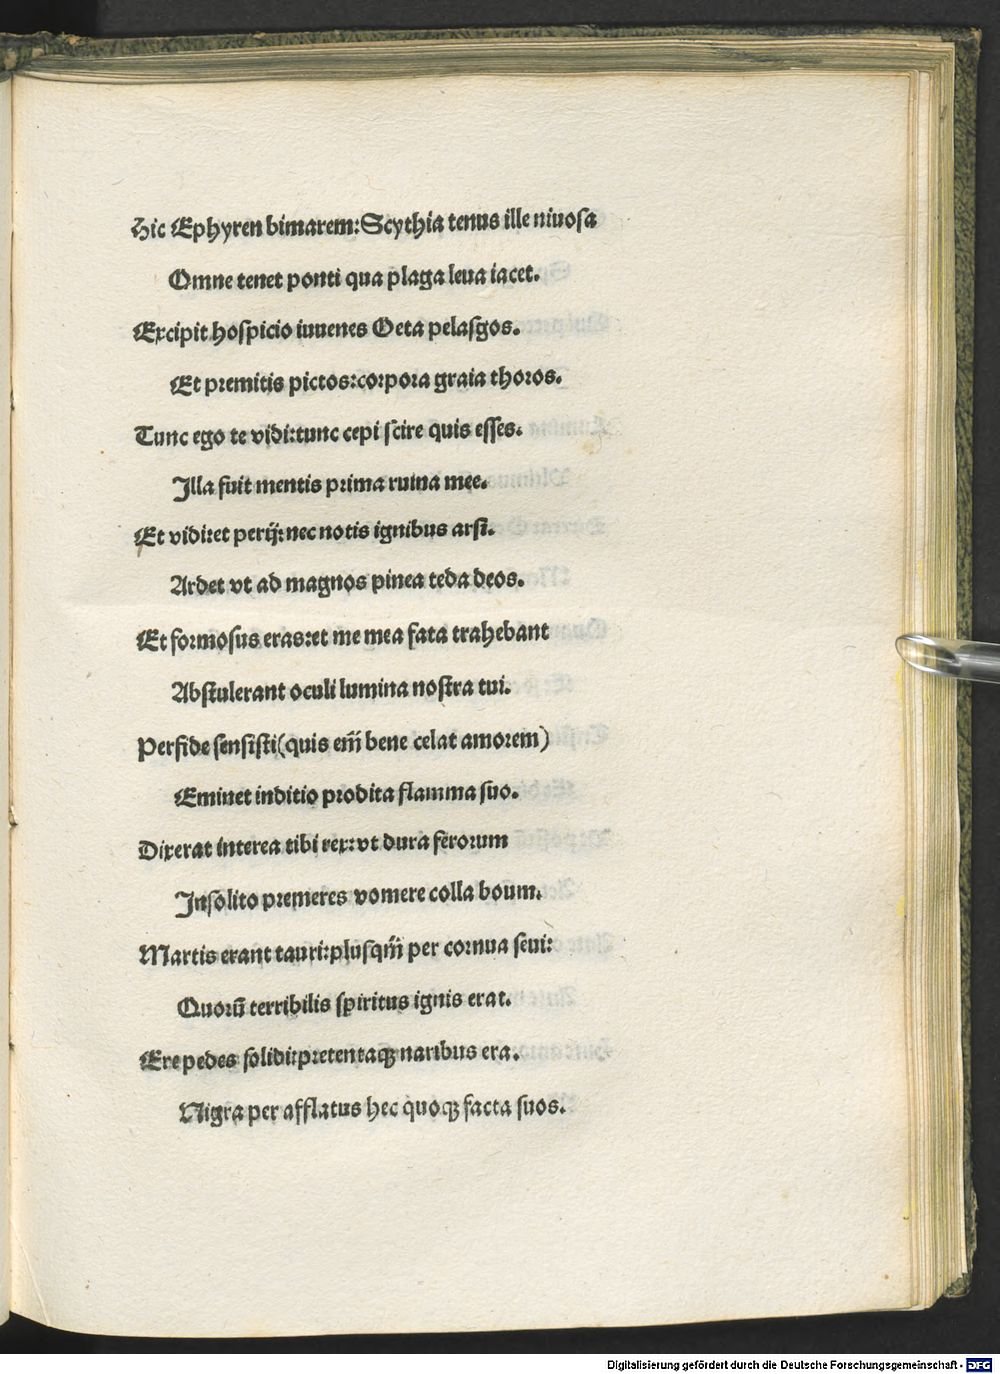 Hic Ephyren bimarem: Scythia tenus ille niuosa
Omne tenet ponti qua plaga leua iacet.
Excipit hospicio iuuenes Oeta pelasgos.
Et premitis pictos: corpora graia thoros.
Tunc ego te vidi: tunc cepi scire quis esses.
Illa fuit mentis prima ruina mee.
Et vidi: et perij: nec notis ignibus arsi.
Ardet vt ad magnos pinea teda deos.
Et formosus eras: et me mea fata trahebant
Abstulerant oculi lumina nostra tui.
Perfide sensisti (quis em̄ bene celat amorem)
Eminet inditio prodita flamma suo.
Dixerat interea tibi rex: vt dura ferorum
Insolito premeres vomere colla boum.
Martis erant tauri: plusqm̄ per cornua seui:
Quorū terribilis spiritus ignis erat.
Ere pedes solidi: pretentaqꝫ naribus era.
Nigra per afflatus hec quoqꝫ facta suos.
Digitalisierung gefördert durch die Deutsche Forschungsgemeinschaft - DFG